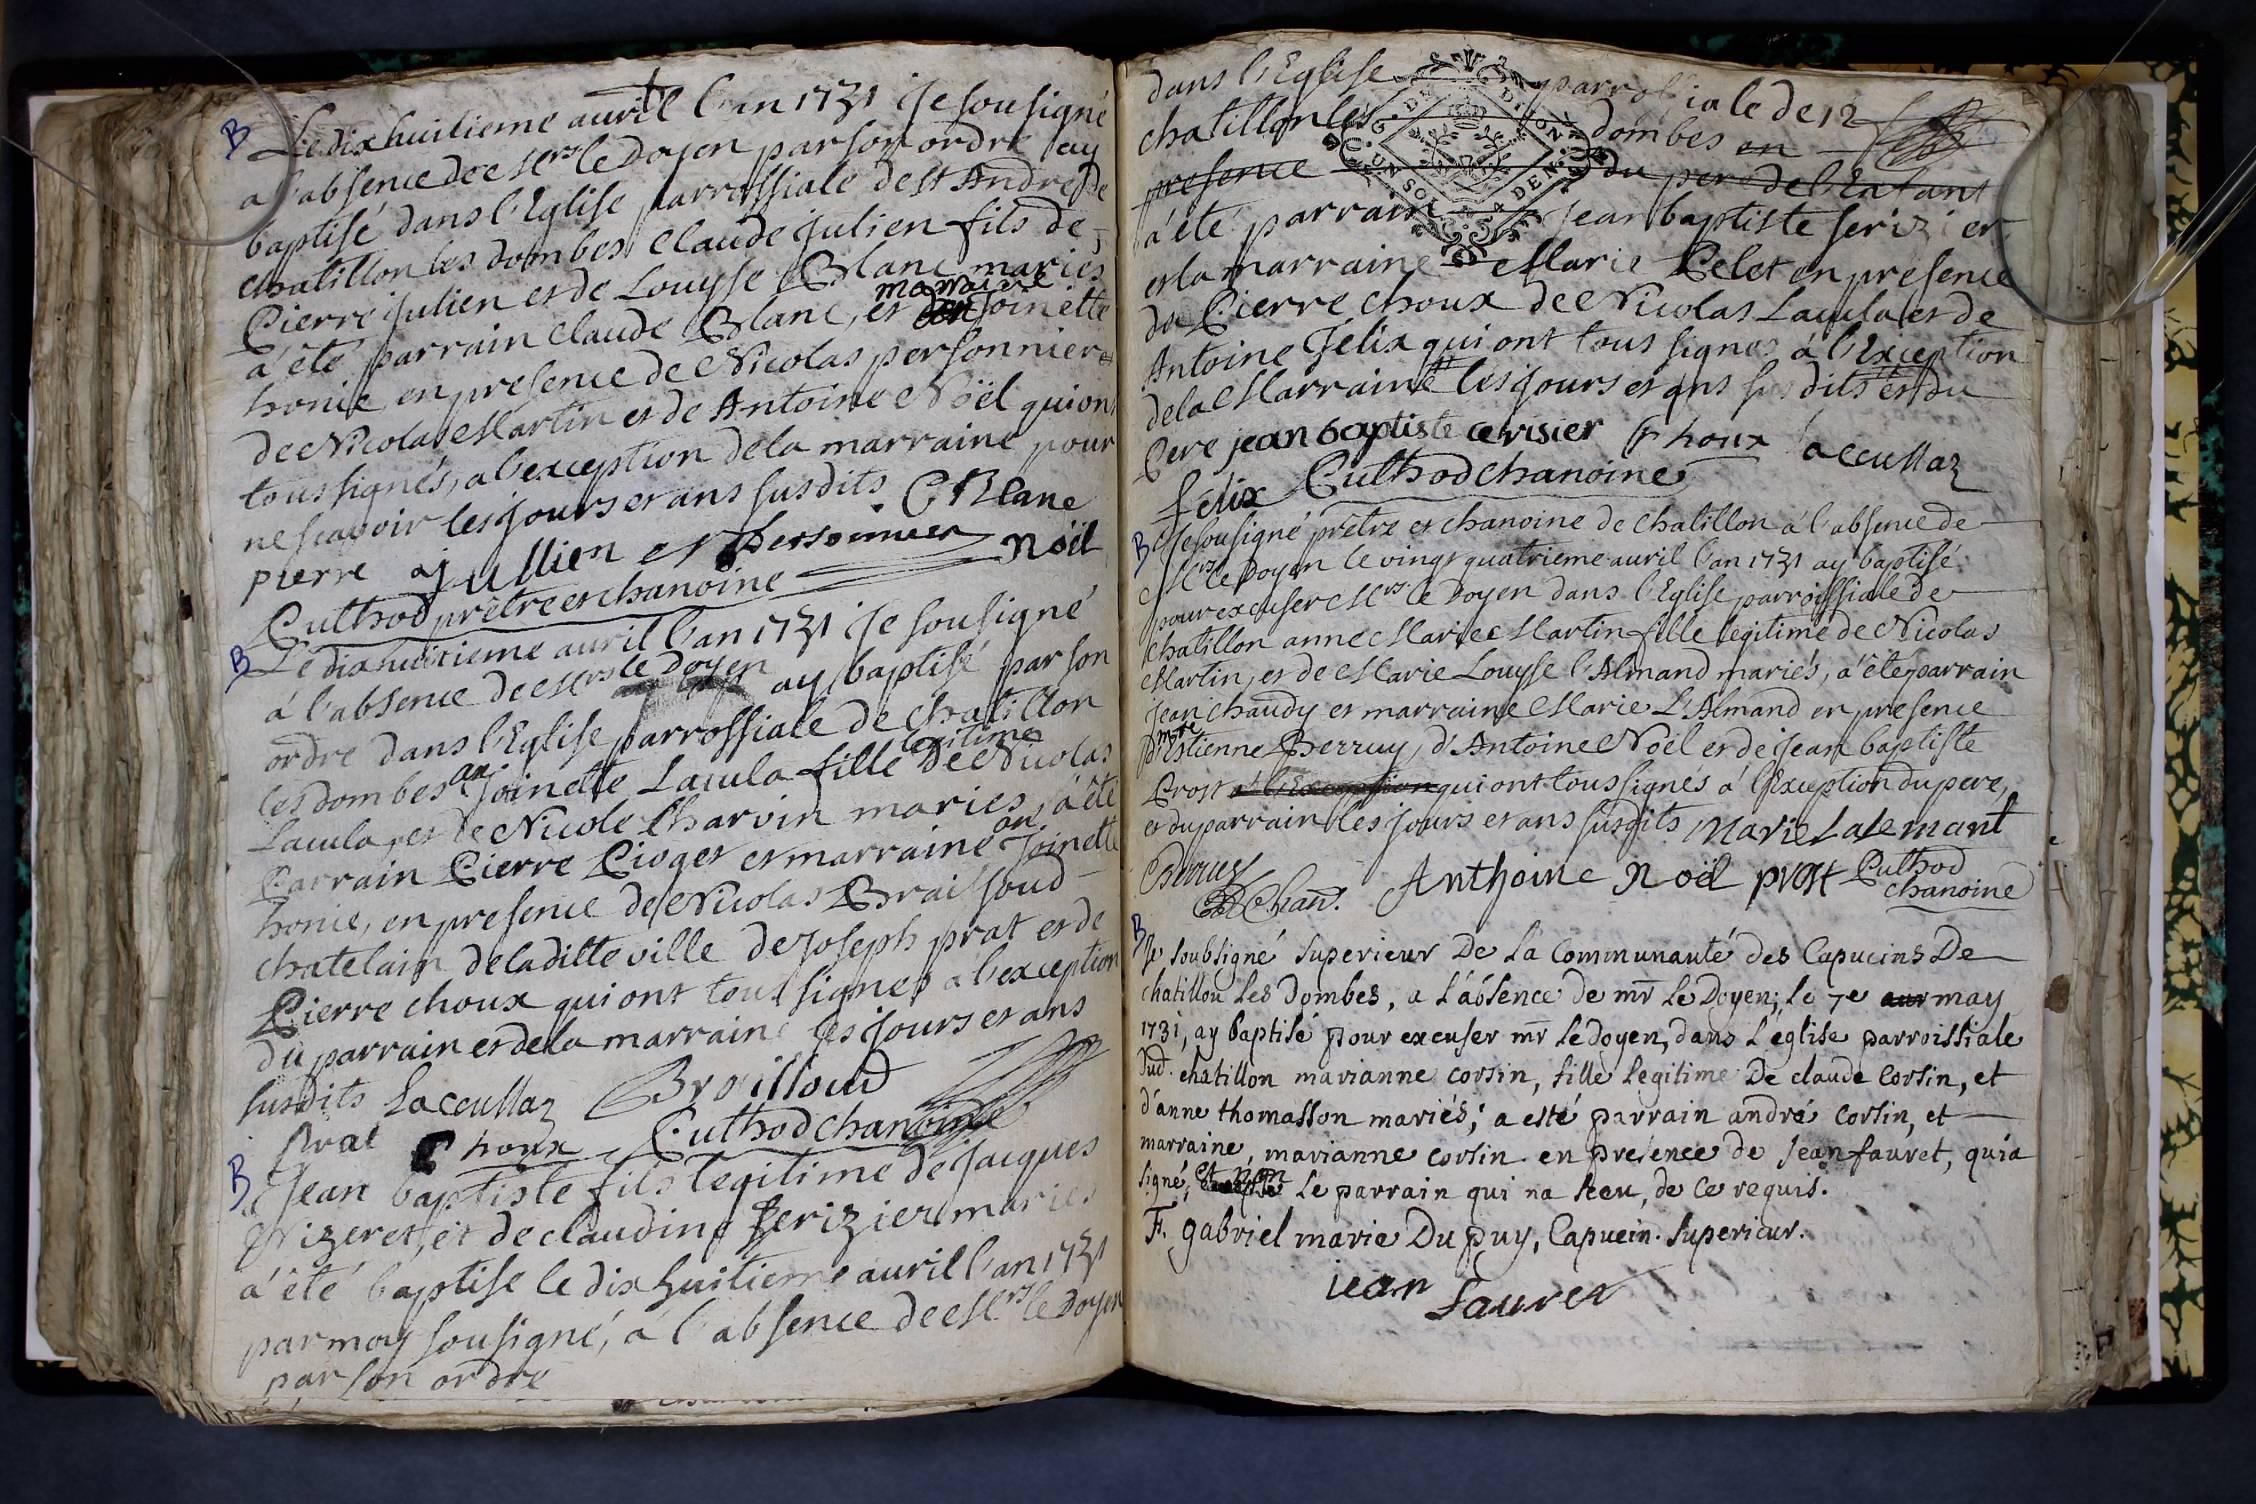 B Le dix huitieme auril l'an 1731 je sousigné
a l'absence de Mrs le Doyen par son ordre ay
baptisé dans l'Eglise parrossiale de st André de
chatillon les dombes Claude Julien fils de
Pierre julien et de Louyse Blanc mariés
à été parrain Claude Blanc, et marraine joinette
honie, en presence de Nicolas personnier
de Nicolas Martin et de Antoine Noël qui ont
tous signés, a l'exception de la marraine pour
ne scavoir les jours et ans susdits C Blanc
pierre jullien personnier noël
Cuthod prêtre et chanoine
B Le dix huitieme auril l'an 1731 je sousigné
à l'absence de Mrs le Doyen ay baptisé par son
ordre dans l'Eglise parrossiale de chatillon
les dombes anjoinette Lacula fille legitime de Nicolas
Lacula, et de Nicole Charvin mariés, à été
Parrain Pierre Pioger et marraine anjoinette
honie, en presence de Nicolas Braissoud
chatelain de la ditte ville de Joseph prat et de
Pierre choux qui ont tous signés a l'exception
du parrain et de la marraine les jours et ans
susdits Laccullaz Broilloud
prat Choux Cuthod chanoine
B Jean baptiste fils legitime de Jacques
Nizeret, et de claudine Serizier mariés
à été baptisé le dix huitieme auril l'an 1731
par moy sousigné, à l'absence de Mrs le Doyen
par son ordre
dans l'Eglise parrossiale de
chatillon les dombes en
presence du pere de l'Enfant
à été parrain Jean baptiste serizier
et la marraine Marie Pelet en presence
de Pierre choux de Nicolas Lacula et de
Antoine Felix qui ont tous signes à l'Exception
de la Marraine les jours et ans susdits et du
Pere jean baptiste cerisier Choux laccullaz
felix Cuthod chanoine
G. DE DIJON UN SOL 4 DEN.
B Je sousigné prêtre et chanoine de chatillon à l'absence de
Mrs le Doyen le vingt quatrieme auril l'an 1731 ay baptisé
pour excuser Mrs le Doyen dans l'Eglise parroissiale de
chatillon anne Marie Martin fille legitime de Nicolas
Martin, et de Marie Louyse l'Almand mariés, à été parrain
Jean chaudy et marraine Marie L'Almand en presence
d'Estienne Berruy, d'Antoine Noël et de Jean baptiste
Prost qui ont tous signés à l'Exception du pere,
et du parrain les jours et ans susdits Marie Lalemant
Berruy Chan. Anthoine Noël prost Cuthod
chanoine
B Je soubsigné superieur De La Communauté des Capucins De
chatillon Les Dombes, a L'absence de mr Le Doyen; Le 7e may
1731, ay baptisé pour excuser mr Le doyen, dans L'eglise parroissiale
Dud. chatillon marianne corsin, fille Legitime De claude Corsin, et
d'anne thomasson mariés; a esté parrain andré corsin, et
marraine, marianne corsin en presence de Jean fauret, qui a
signé, et non Le parrain qui na sceu, de ce requis.
F. gabriel marie Du puy, Capucin. Superieur.
iean
Fauret